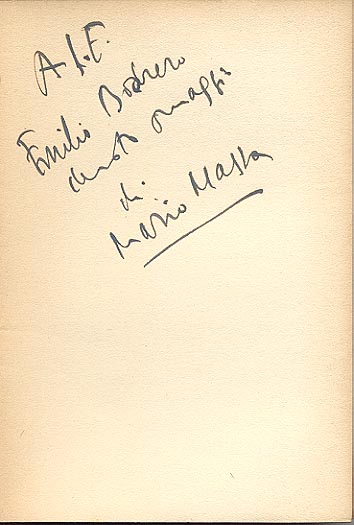 A S.E.
Emilio Bodrero
devoto omaggio
di
Mario Massa